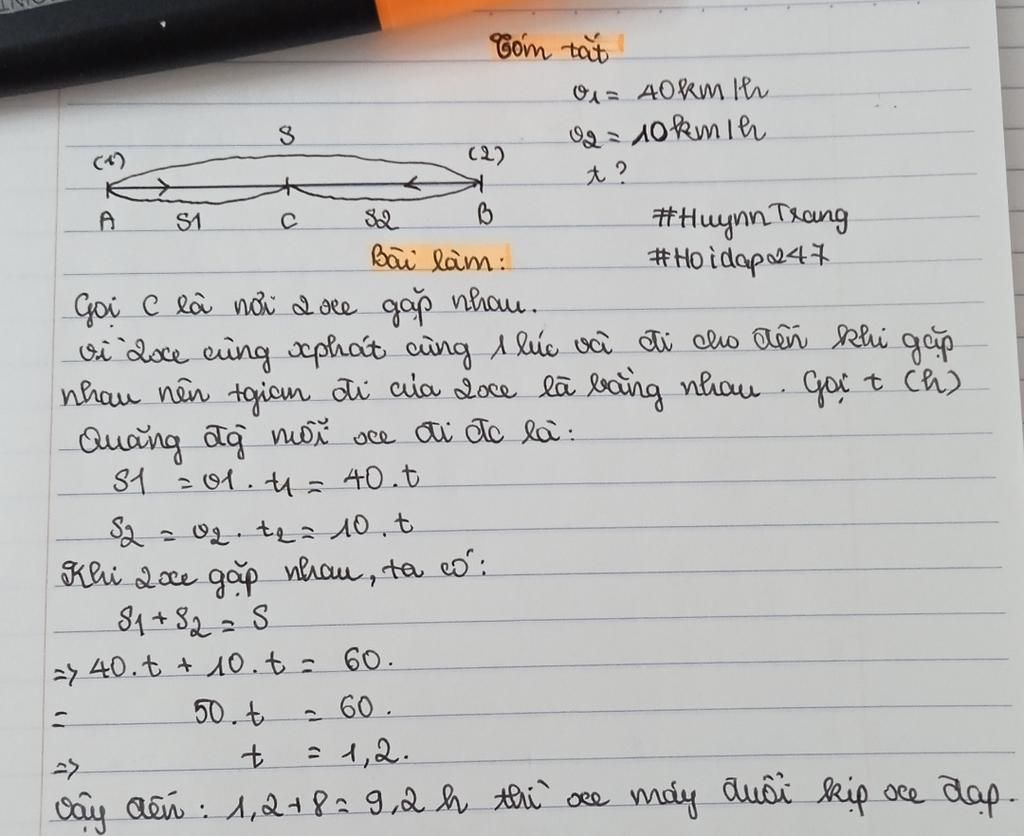 Tóm tắt
v1 = 40km/h
v2 = 10km/h
t?
S
(1) (2)
A S1 C S2 B
#HuynnTrang
#Hoidap247
Bài làm:
Gọi C là nơi 2 xe gặp nhau.
Vì 2xe cùng xphát cùng 1 lúc và đi cho đến khi gặp
nhau nên tgian đi của 2xe là bằng nhau. Gọi t (h)
Quãng đg mỗi xe đi đc là:
S1 = v1. t1 = 40.t
S2 = v2. t2 = 10.t
Khi 2xe gặp nhau, ta có:
S1 + S2 = S
=> 40.t + 10.t = 60.
= 50.t = 60.
=> t = 1,2.
Vậy đến: 1,2+8 = 9,2 h thì xe máy đuổi kịp xe đạp.